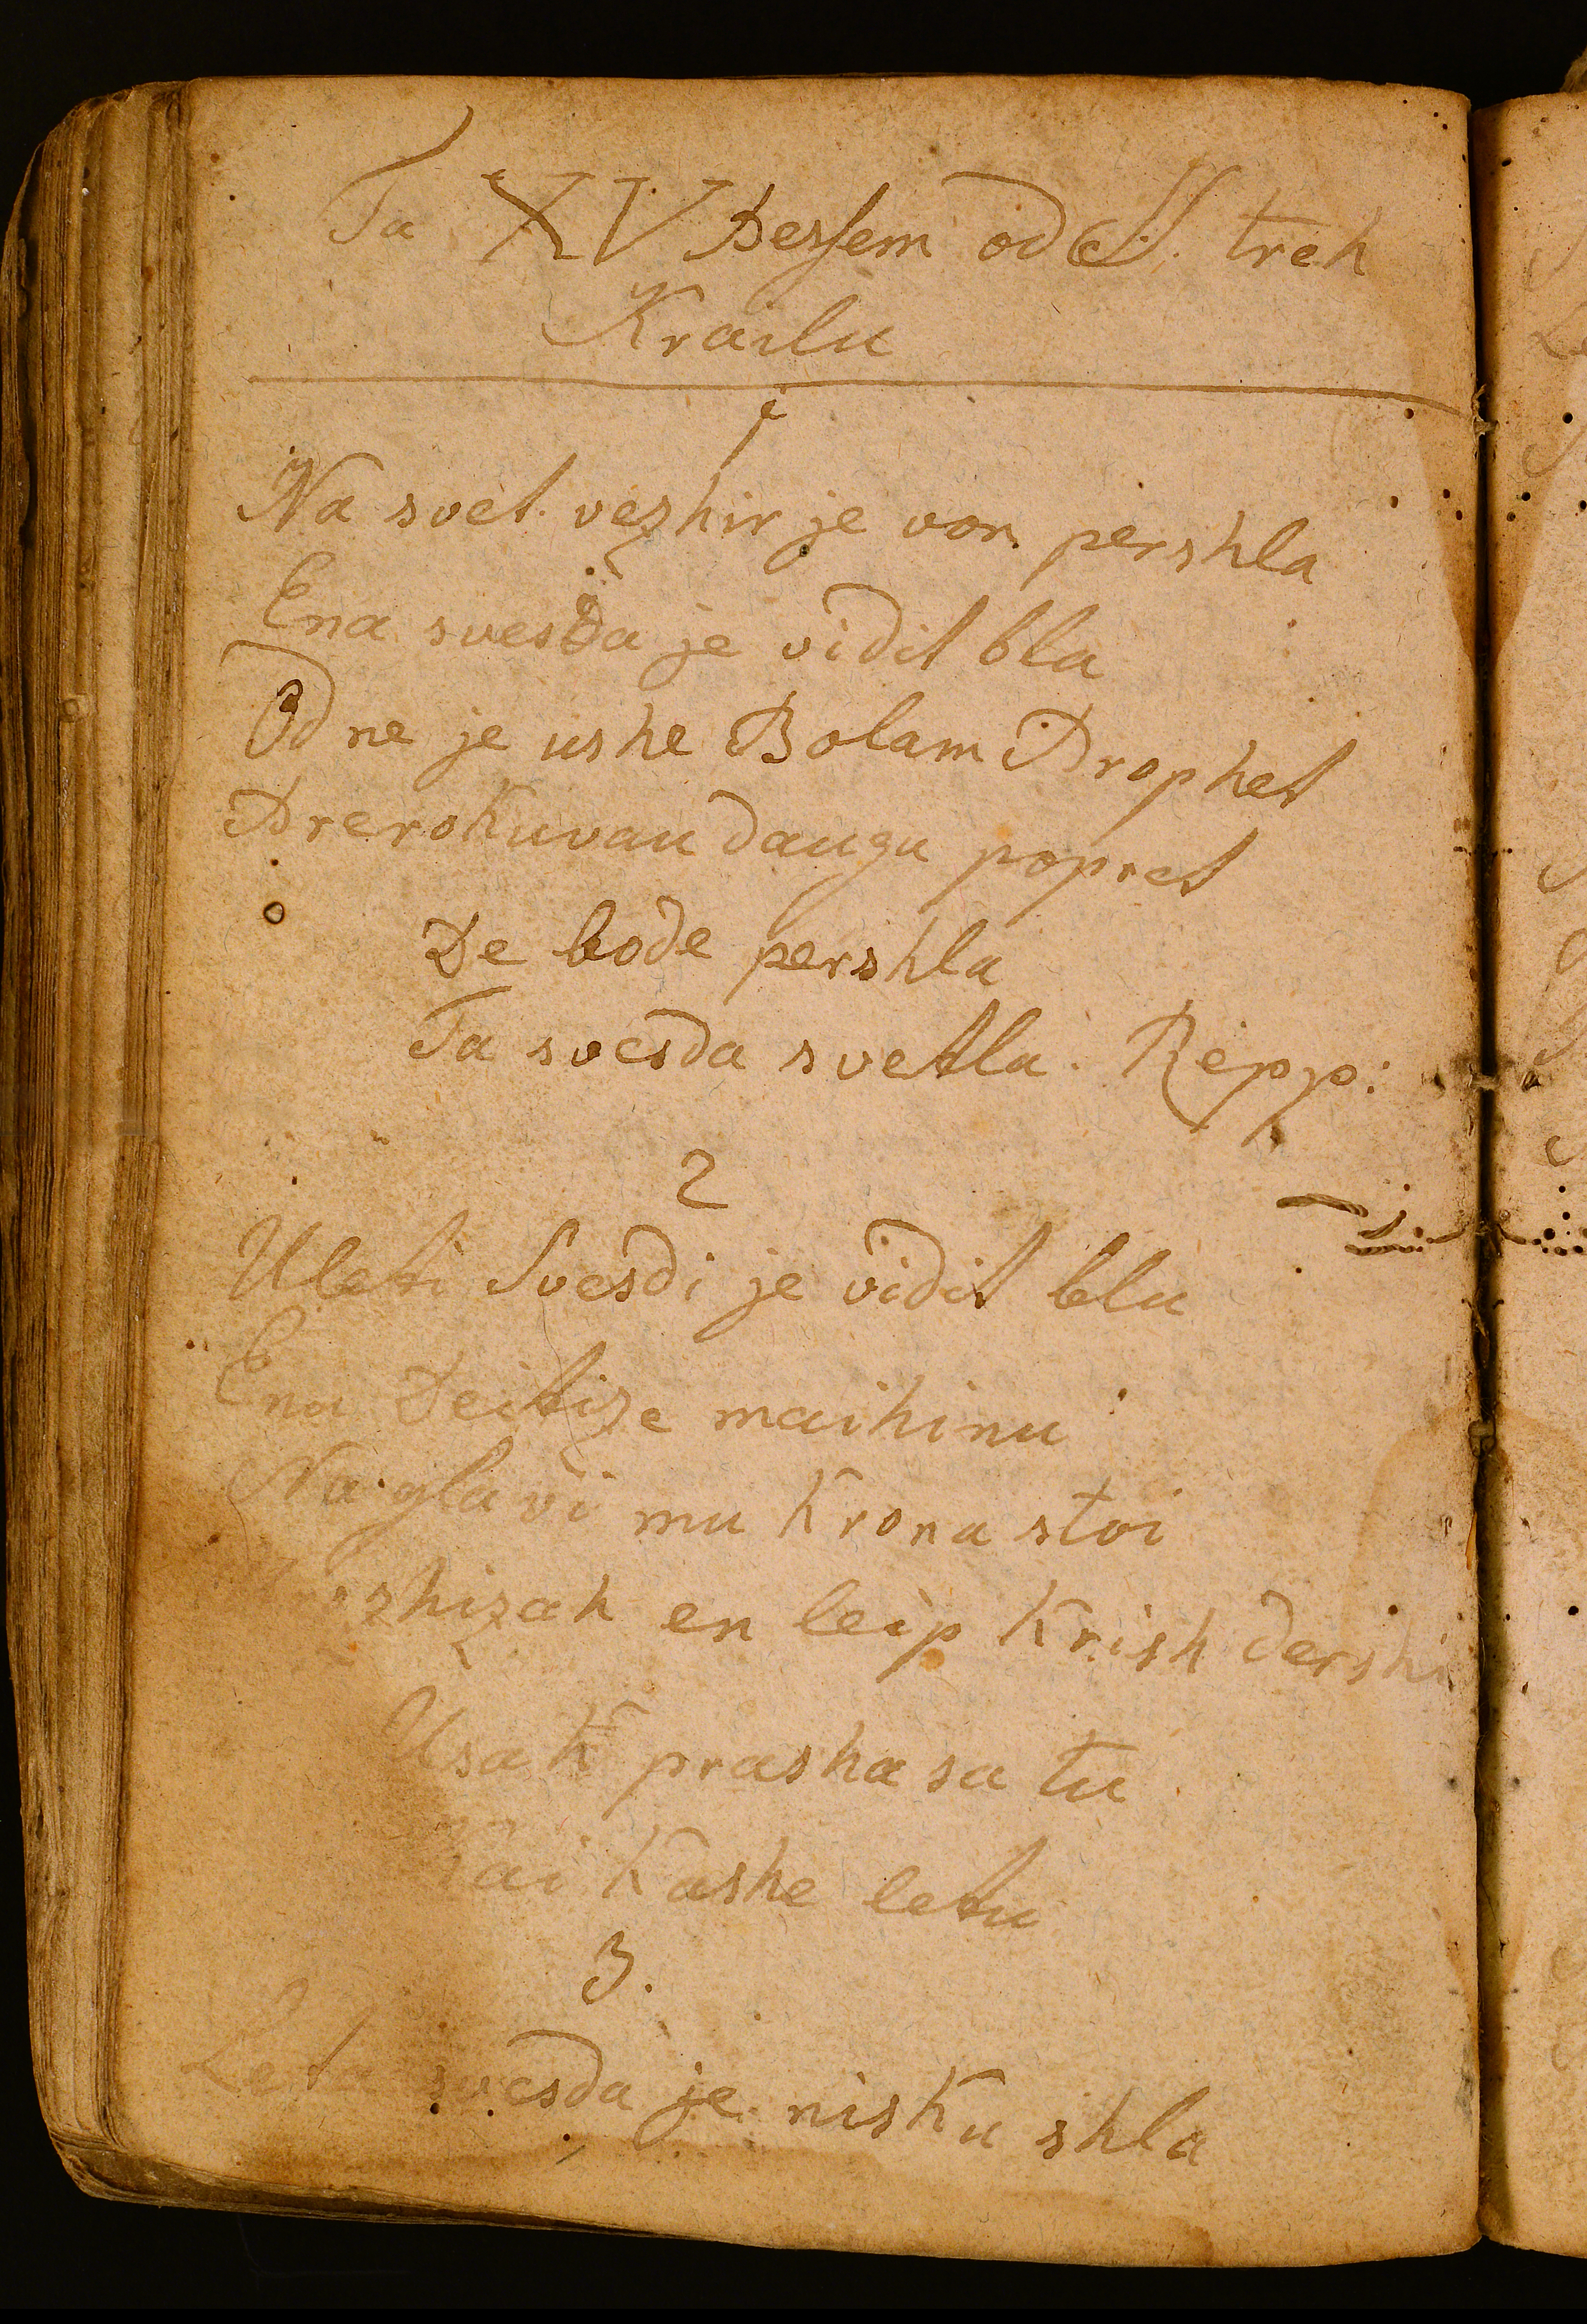 Ta XV Pessem od S. treh
Krailu
1
Na svet vezhir je von pershla
Ena svesda je vidit bla
Od ne je ushe Bolam Prophet
Prerokuvau daugu popret
De bode pershla
Ta svesda svetla. Repp:
2
Uleti Svesdi je vidit blu
Ena Deitize maihinu
Na glavi mu Krona stoi
en leip Krish dershi
Usak prasha sa tu
Kai Kashe letu
3.
Leta svesda je nisku shla